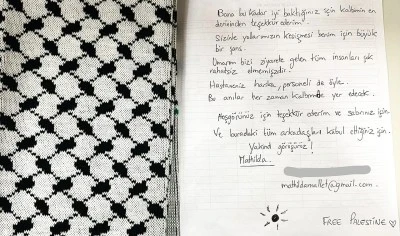 Bana bu kadar iyi baktığınız için kalbimin en
derininden teşekkür ederim.
Sizinle yollarımızın kesişmesi benim için büyük
bir şans.
Umarım bizi ziyarete gelen tüm insanları çok
rahatsız etmemişizdir.
Hastaneniz harika, personeli de öyle.
Bu anılar her zaman kalbimde yer edecek.
Hoşgörünüz için teşekkür ederim ve sabrınız için
Ve buradaki tüm arkadaşları kabul ettiğiniz için.
Yakında görüşürüz!
Mathilda.
mathildamallet@gmail.com.
FREE PALESTINE